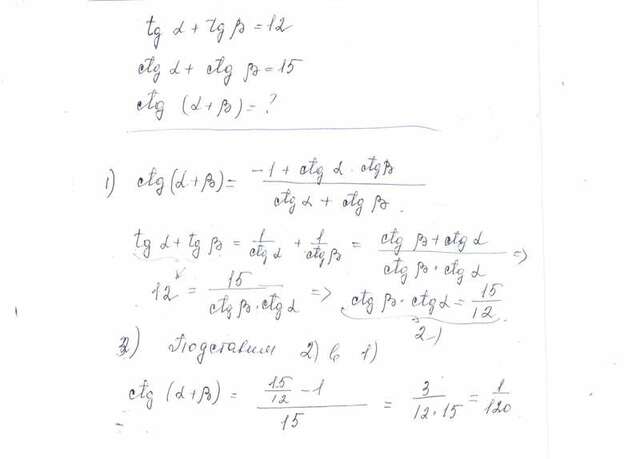 tg α + tg β = 12
ctg α + ctg β = 15
ctg (α+β) = ?
1) ctg (α+β) = (-1 + ctg α · ctg β) / (ctg α + ctg β).
tg α + tg β = 1/ctg α + 1/ctg β = (ctg β + ctg α) / (ctg β · ctg α) =>
12 = 15 / (ctg β · ctg α) => ctg β · ctg α = 15/12
2)
3) Подставим 2) в 1)
ctg (α+β) = (15/12 - 1) / 15 = 3 / (12·15) = 1/120